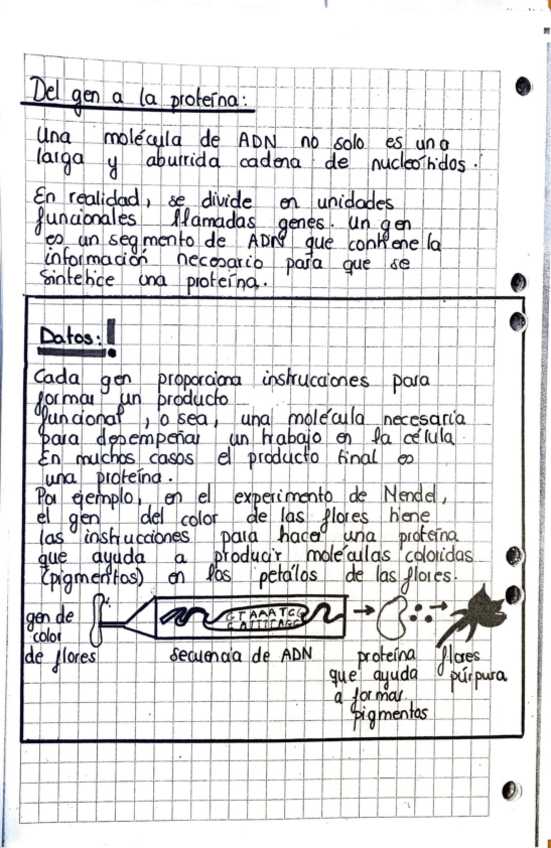 Del gen a la proteína:
Una molécula de ADN no solo es una
larga y aburrida cadena de nucleótidos.
En realidad, se divide en unidades
funcionales llamadas genes. Un gen
es un segmento de ADN que contiene la
información necesario para que se
sintetice una proteína.
Datos:!
Cada gen proporciona instrucciones para
formar un producto
funcional, o sea, una molécula necesaria
para desempeñar un trabajo en la célula
En muchos casos el producto final es
una proteína.
Por ejemplo, en el experimento de Mendel,
el gen del color de las flores tiene
las instrucciones para hacer una proteína
que ayuda a producir moléculas coloridas
(pigmentos) en los petálos de las flores.
gen de
color
de flores
GTAAATCG
secuencia de ADN
proteína
que ayuda
a formar
pigmentos
flores
púrpura